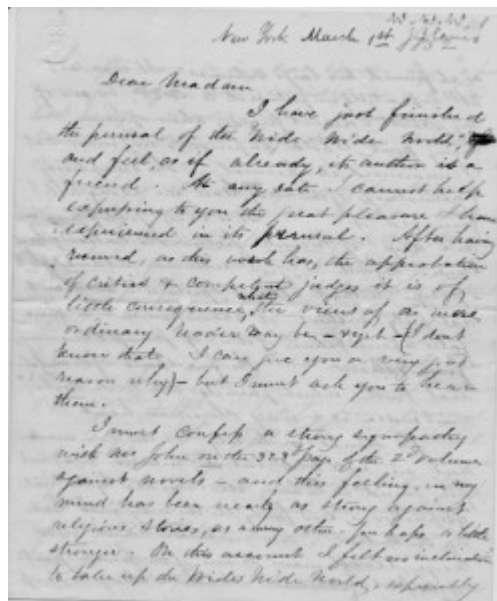 W. W. W.
New York March 1st
Dear Madam
I have just finished
the perusal of the Wide Wide World,
and feel, as if already, its author is a
friend. At any rate I cannot help
expressing to you the great pleasure I have
experienced in its perusal. After having
received, as this work has, the approbation
of critics & competent judges it is of
little consequence, what the views of a mere
ordinary reader may be - yet - (I don't
know that I can give you a very good
reason why) - but I must ask you to hear
them.
I must confess a strong sympathy
with Mr John on the 328 page of the 2d Volume
against novels - and this feeling, in my
mind has been nearly as strong against
religious stories, as any other - perhaps a little
stronger. On this account I felt no inclination
to take up the Wide Wide World, especially